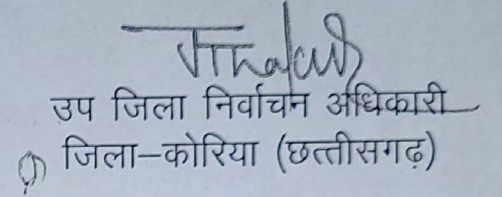 उप जिला निर्वाचन अधिकारी
जिला–कोरिया (छत्तीसगढ़)